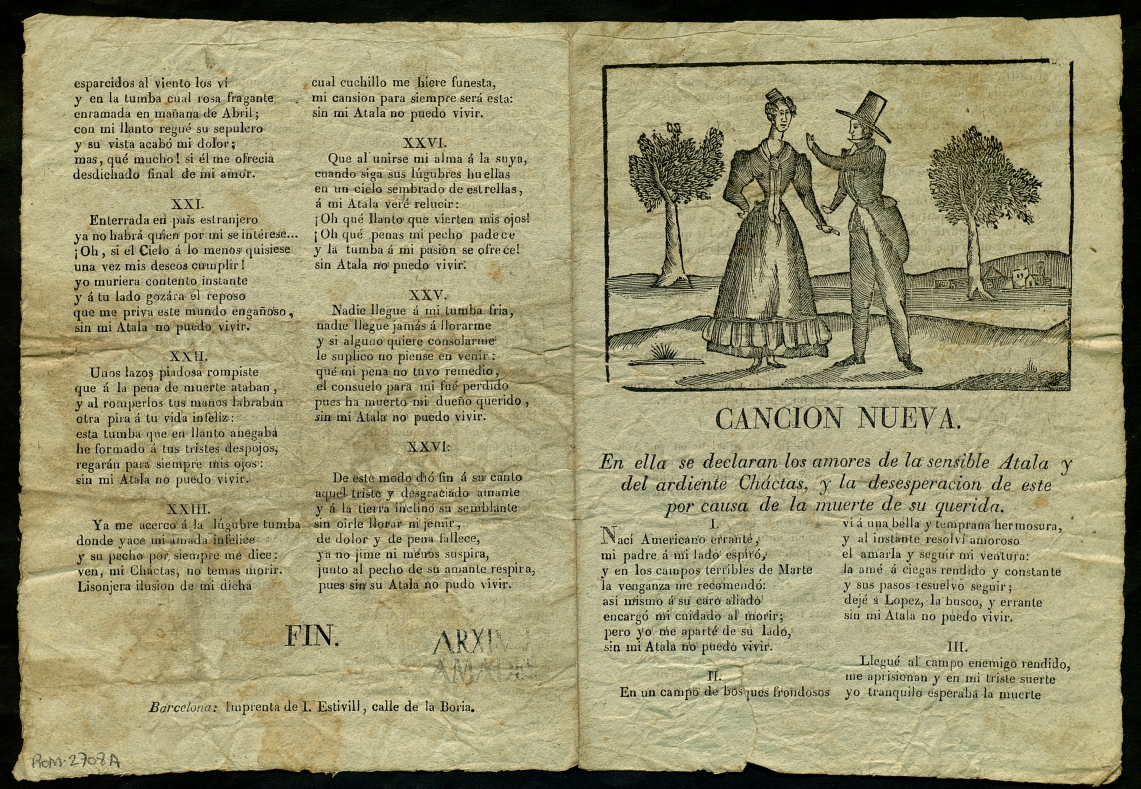 esparcidos al viento los ví
y en la tumba cual rosa fragante
enramada en mañana de Abril;
con mi llanto regué su sepulcro
y su vista acabó mi dolor;
mas, qué mucho! si él me ofrecia
desdichado final de mi amor.
XXI.
Enterrada en país estranjero
ya no habrá quien por mi se intérese...
¡Oh, si el Cielo á lo menos quisiese
una vez mis deseos cumplir!
yo muriera contento instante
y á tu lado gozára el reposo
que me priva este mundo engañoso,
sin mi Atala no puedo vivir.
XXII.
Unos lazos piadosa rompiste
que á la pena de muerte ataban,
y al romperlos tus manos labraban
otra pira á tu vida infeliz:
esta tumba que en llanto anegaba
he formado á tus tristes despojos,
regarán para siempre mis ojos:
sin mi Atala no puedo vivir.
XXIII.
Ya me acerco á la lúgubre tumba
donde yace mi amada infelice
y su pecho por siempre me dice:
ven, mi Cháctas, no temas morir.
Lisonjera ilusion de mi dicha
cual cuchillo me hiere funesta,
mi cansion para siempre será esta:
sin mi Atala no puedo vivir.
XXVI.
Que al unirse mi alma á la suya,
cuando siga sus lúgubres huellas
en un cielo sembrado de estrellas,
á mi Atala veré relucir:
¡Oh qué llanto que vierten mis ojos!
¡Oh qué penas mi pecho padece
y la tumba á mi pasion se ofrece!
sin Atala no puedo vivir.
XXV.
Nadie llegue á mi tumba fria,
nadie llegue jamás á llorarme
y si alguno quiere consolarme
le suplico no piense en venir:
qué mi pena no tuvo remedio,
el consuelo para mi fué perdido
pues ha muerto mi dueño querido,
sin mi Atala no puedo vivir.
XXVI.
De este modo dió fin á su canto
aquel triste y desgraciado amante
y á la tierra inclinó su semblante
sin oirle llorar ni jemir,
de dolor y de pena fallece,
ya no jime ni ménos suspira,
junto al pecho de su amante respira,
pues sin su Atala no pudo vivir.
FIN.
ARXIU
Barcelona: Imprenta de I. Estivill, calle de la Boria.
ROM-2708A
CANCION NUEVA.
En ella se declaran los amores de la sensible Atala y
del ardiente Cháctas, y la desesperacion de este
por causa de la muerte de su querida.
I.
Nací Americano errante,
mi padre á mi lado espiró,
y en los campos terribles de Marte
la venganza me recomendó:
así mismo á su caro aliado
encargó mi cuidado al morir;
pero yo me aparté de su lado,
sin mi Atala no puedo vivir.
II.
En un campo de bosques frondosos
ví á una bella y temprana hermosura,
y al instante resolví amoroso
el amarla y seguir mi ventura:
la amé á ciegas rendido y constante
y sus pasos resuelvo seguir;
dejé á Lopez, la busco, y errante
sin mi Atala no puedo vivir.
III.
Llegué al campo enemigo rendido,
me aprisionan y en mi triste suerte
yo tranquilo esperaba la muerte